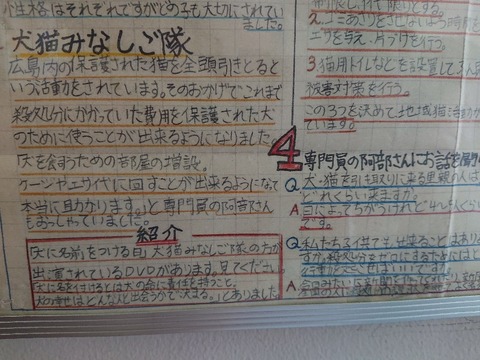 性格はそれぞれですがどの子も大切にされてい
ました。
犬猫みなしご隊
広島県内の保護された猫を全頭引きとると
いう活動をされています。そのおかげでこれまで
殺処分にかかっていた費用を保護された犬
のために使うことが出来るようになりました
「犬を会すための部屋の増設。
ケージやエサ代に回すことが出来るようになって
本当に助かります。」と専門員の阿部さん
もおっしゃっていました。
紹介
「犬に名前をつける日」犬猫みなしご隊の方が
出演されているDVDがあります。見てください。
「犬に名を付けるとは犬の命に責任を持つこと。
犬の幸せはどんな人と出会うかで決まる。」とありました
え、ゴミあさりをさせないよう時間を
エサを与え、片づけを行う。
3 猫用トイレなどを設置して
被害対策を行う。
この3つを決めて地域猫活動が
ています。
4 専門員の阿部さんにお話を
Q 犬・猫を引き取りに来る里親の人は
どれくらい来ますか。
A 日によってちがうけれど
です。
Q 私たち子供でも出来ることはあり
すか。殺処分をゼロにするためには
行動をおこせばいいですか